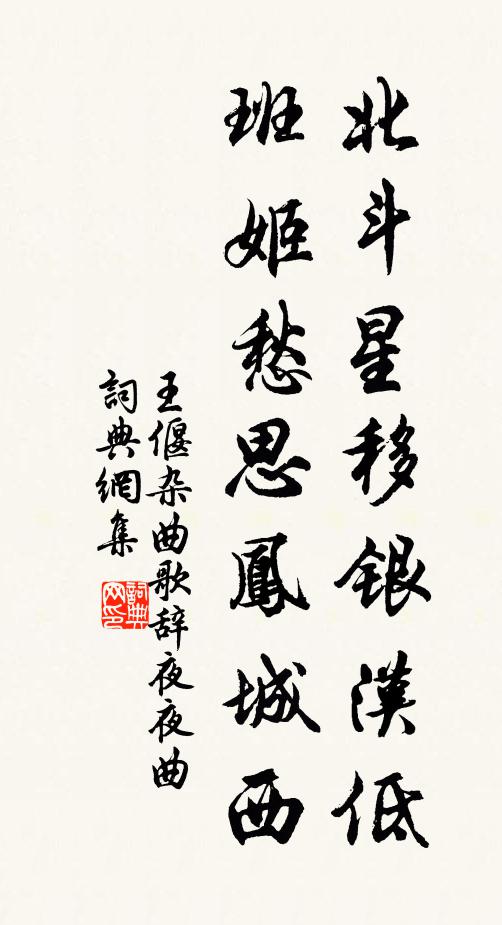 北斗星移銀漢低
班姬愁思鳳城西
王偃杂曲歌辞夜夜曲
詞典網集
詞典网印